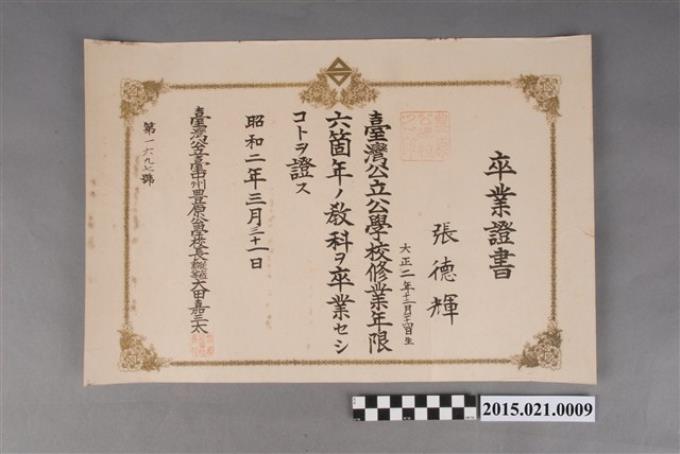 卒業證書
張德輝
大正二年十二月十四日生
臺灣公立公學校修業年限
六箇年ノ敎科ヲ卒業セシ
コトヲ證ス
昭和二年三月三十一日
臺灣公立臺中州豐原公學校長 太田嘉三太
第一六九七號
2015.021.0009